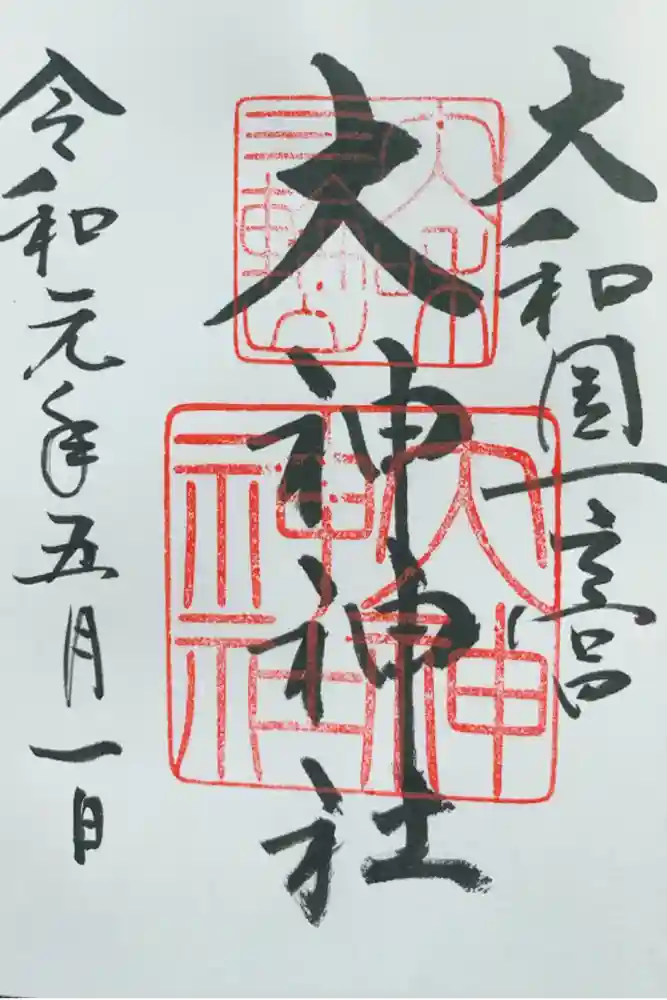 大和国一宮
大神神社
令和元年五月一日
三輪
大和
明神
大神
神社